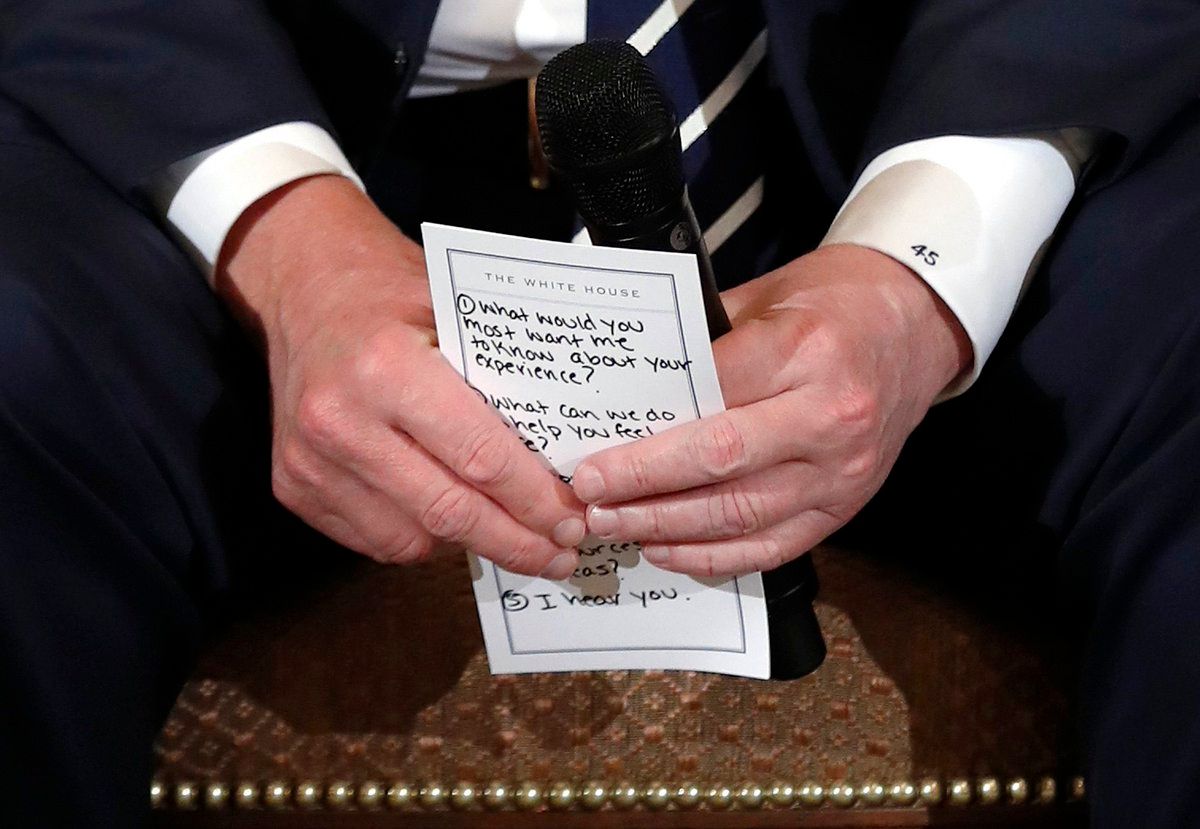 THE WHITE HOUSE
① What would you
most want me
to know about your
experience?
What can we do
help you feel
I hear you.
⑤
45